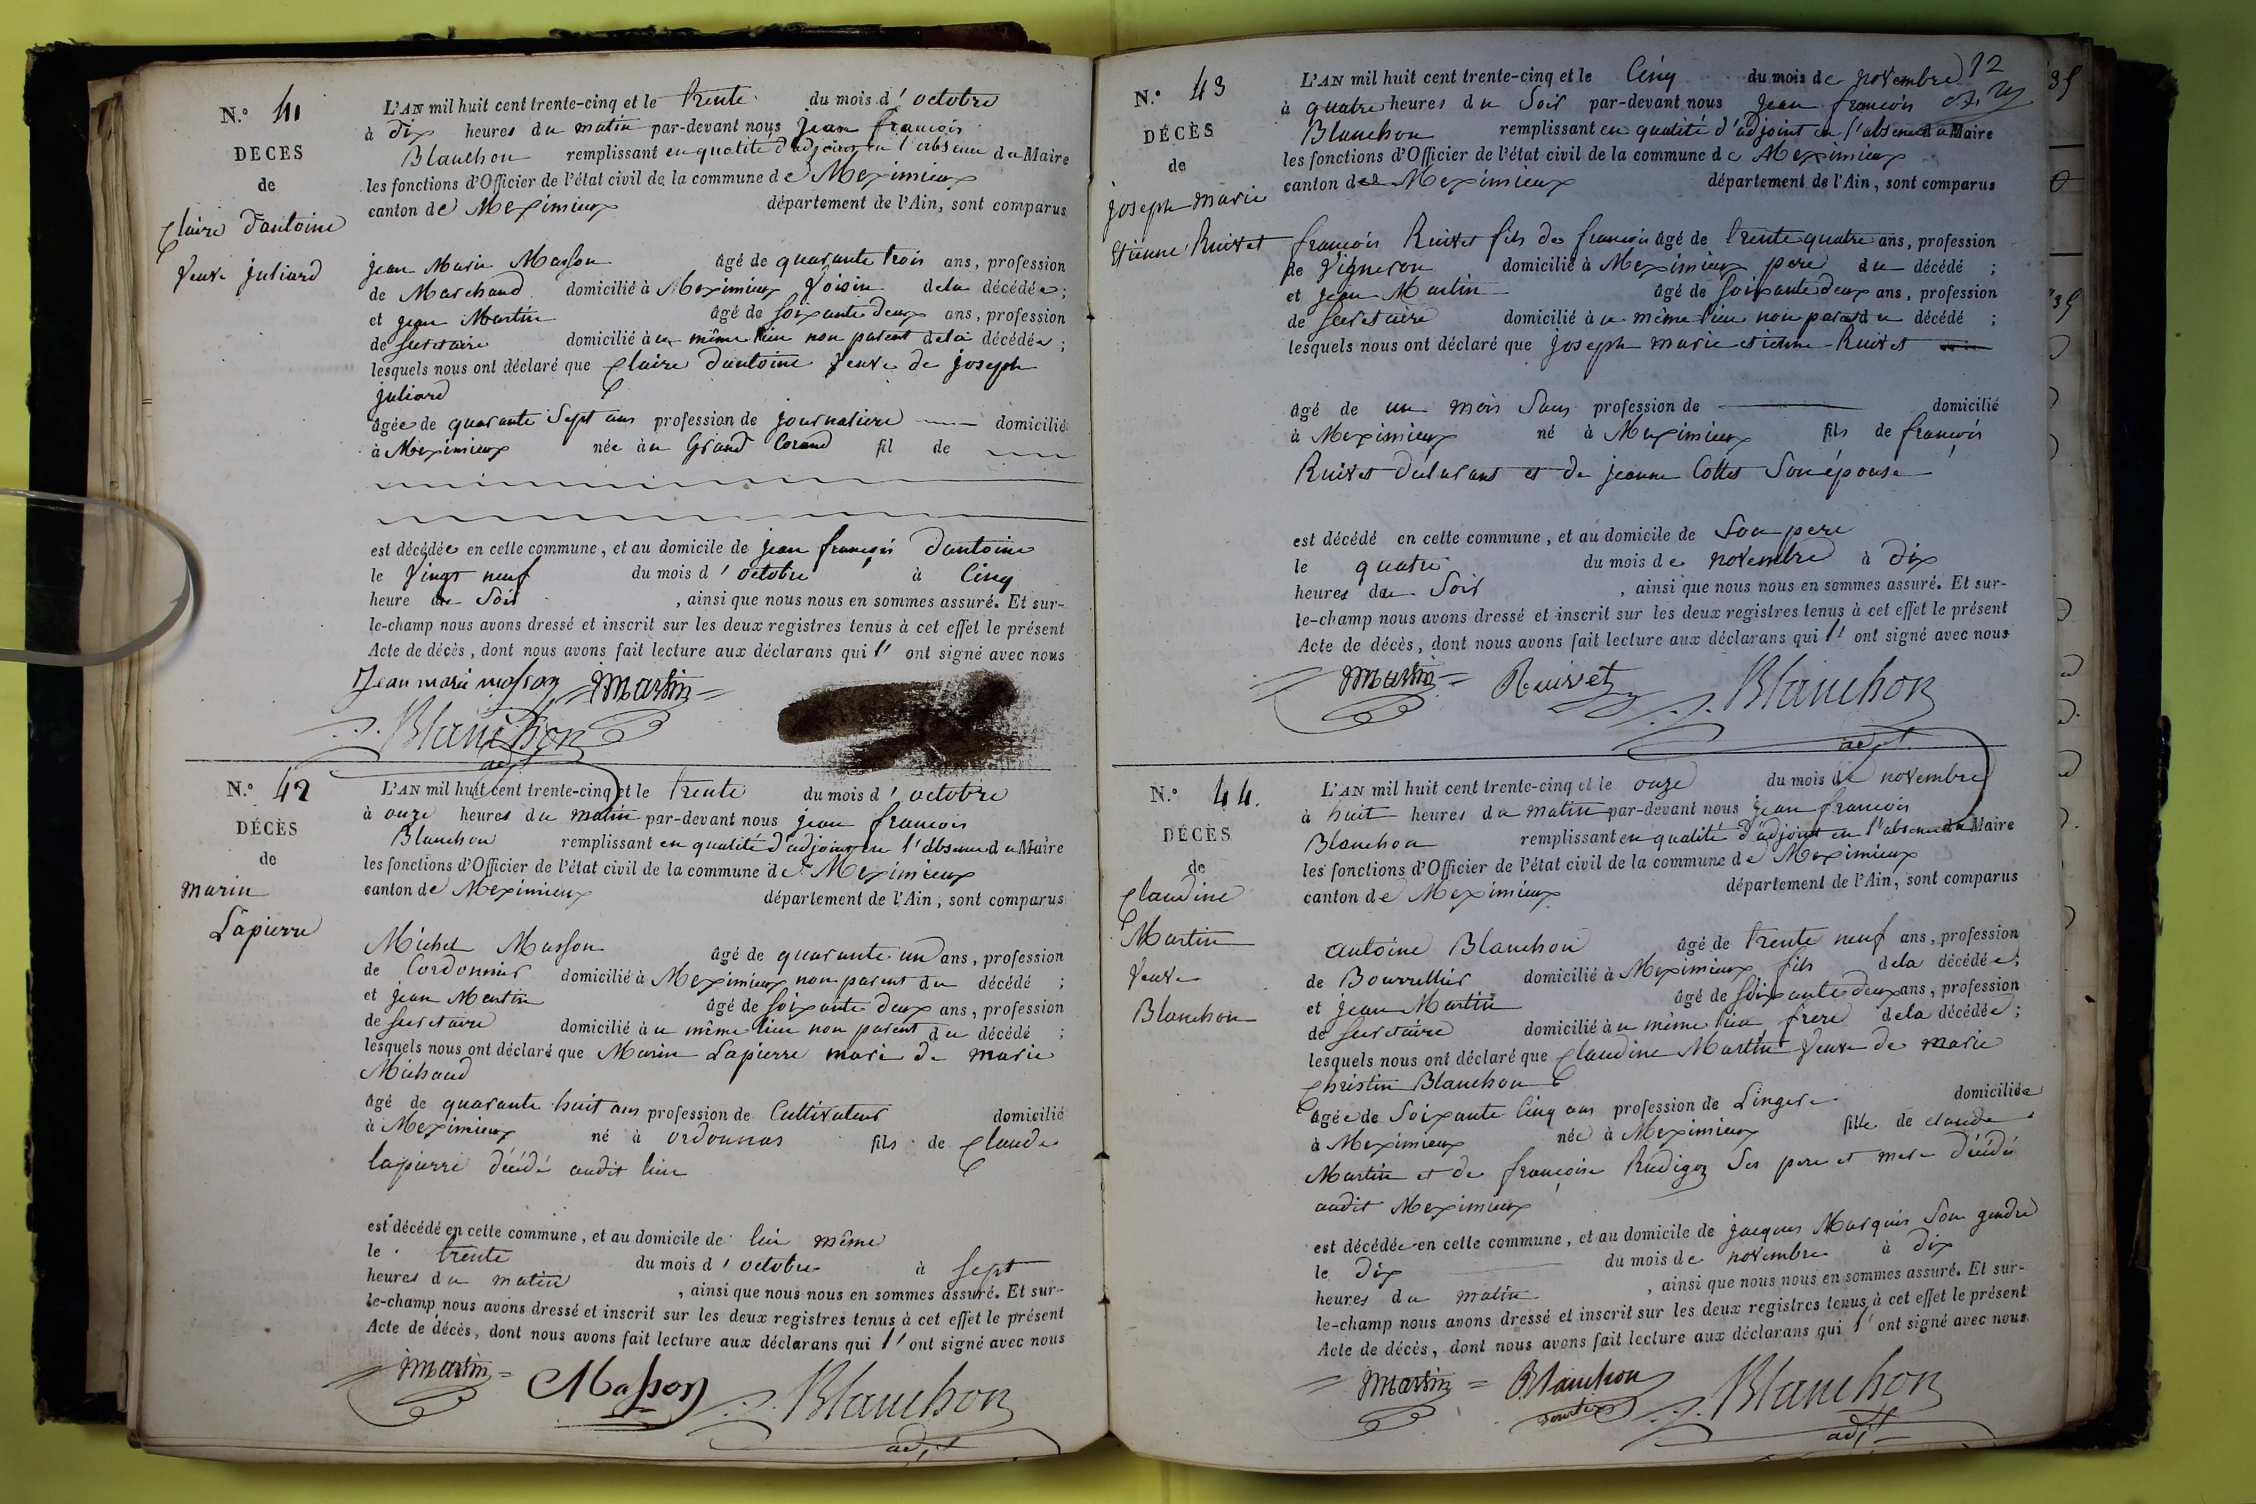 N.º 41
DECES
de
Claire Dantoine
Veuve Juliard
L'AN mil huit cent trente-cinq et le trente du mois d'octobre
à dix heures du matin par-devant nous Jean françois
Blanchon remplissant en qualité d'adjoint en l'absence du Maire
les fonctions d'Officier de l'état civil de la commune de Meximieux
canton de Meximieux département de l'Ain, sont comparus
Jean Marie Masson âgé de quarante trois ans, profession
de Marchand domicilié à Meximieux Voisin dela décédée ;
et Jean Martin âgé de soixante deux ans, profession
de Secretaire domicilié à u même lieu non parent dela décédée ;
lesquels nous ont déclaré que Claire Dantoine Veuve de Joseph
Juliard
âgée de quarante Sept ans profession de journaliere domicilié
à Meximieux née au Grand Corand fil de
est décédée en cette commune, et au domicile de Jean françois Dantoine
le Vingt neuf du mois d'octobre à Cinq
heure du Soir, ainsi que nous nous en sommes assuré. Et sur-
le-champ nous avons dressé et inscrit sur les deux registres tenus à cet effet le présent
Acte de décès, dont nous avons fait lecture aux déclarans qui l' ont signé avec nous
Jean marie masson Martin
Blanchon
adjt
N.º 42
DÉCÈS
de
Marin
Lapierre
L'AN mil huit cent trente-cinq et le trente du mois d'octobre
à onze heures du matin par-devant nous Jean françois
Blanchon remplissant en qualité d'adjoint en l'absence du Maire
les fonctions d'Officier de l'état civil de la commune de Meximieux
canton de Meximieux département de l'Ain, sont comparus
Michel Masson âgé de quarante un ans, profession
de Cordonnier domicilié à Meximieux non parent du décédé ;
et Jean Martin âgé de soixante deux ans, profession
de Secretaire domicilié à u même lieu non parent du décédé ;
lesquels nous ont déclaré que Marin Lapierre mari de marie
Michaud
âgé de quarante huit ans profession de Cultivateur domicilié
à Meximieux né à ordonnas fils de Claude
lapierre décédé audit lieu
est décédé en cette commune, et au domicile de lui même
le trente du mois d'octobre à Sept
heures du matin, ainsi que nous nous en sommes assuré. Et sur-
le-champ nous avons dressé et inscrit sur les deux registres tenus à cet effet le présent
Acte de décès, dont nous avons fait lecture aux déclarans qui l' ont signé avec nous
Martin Masson Blanchon
adjt
12
N.º 43
DÉCÈS
de
Joseph Marie
Etienne Ruivet
L'AN mil huit cent trente-cinq et le Cinq du mois de novembre
à quatre heures du Soir par-devant nous Jean françois
Blanchon remplissant en qualité d'adjoint en l'absence du Maire
les fonctions d'Officier de l'état civil de la commune de Meximieux
canton de Meximieux département de l'Ain, sont comparus
françois Ruivet fils de françois âgé de trente quatre ans, profession
de Vigneron domicilié à Meximieux pere du décédé ;
et Jean Martin âgé de soixante deux ans, profession
de Secretaire domicilié à u même lieu non parent du décédé ;
lesquels nous ont déclaré que Joseph marie etienne Ruivet
âgé de un mois Sans profession de domicilié
à Meximieux né à Meximieux fils de françois
Ruivet déclarant et de Jeanne Collet Son épouse
est décédé en cette commune, et au domicile de Son pere
le quatre du mois de novembre à dix
heures du Soir, ainsi que nous nous en sommes assuré. Et sur-
le-champ nous avons dressé et inscrit sur les deux registres tenus à cet effet le présent
Acte de décès, dont nous avons fait lecture aux déclarans qui l' ont signé avec nous
Martin Ruivet Blanchon
adjt
N.º 44.
DÉCÈS
de
Claudine
Martin
Veuve
Blanchon
L'AN mil huit cent trente-cinq et le onze du mois de novembre
à huit heures du matin par-devant nous Jean françois
Blanchon remplissant en qualité d'adjoint en l'absence du Maire
les fonctions d'Officier de l'état civil de la commune de Meximieux
canton de Meximieux département de l'Ain, sont comparus
antoine Blanchon âgé de trente neuf ans, profession
de Bourrellier domicilié à Meximieux fils dela décédée ;
et Jean Martin âgé de soixante deux ans, profession
de Secretaire domicilié à u même lieu frere dela décédée ;
lesquels nous ont déclaré que Claudine Martin Veuve de marie
Christin Blanchon
âgée de Soixante Cinq ans profession de Lingere domiciliée
à Meximieux née à Meximieux fille de claude
Martin et de françoise Rudigoz Ses pere et mere décédés
audit Meximieux
est décédée en cette commune, et au domicile de Jacques Marquis Son gendre
le dix du mois de novembre à dix
heures du matin, ainsi que nous nous en sommes assuré. Et sur-
le-champ nous avons dressé et inscrit sur les deux registres tenus à cet effet le présent
Acte de décès, dont nous avons fait lecture aux déclarans qui l' ont signé avec nous
Martin Blanchon Blanchon
adjt